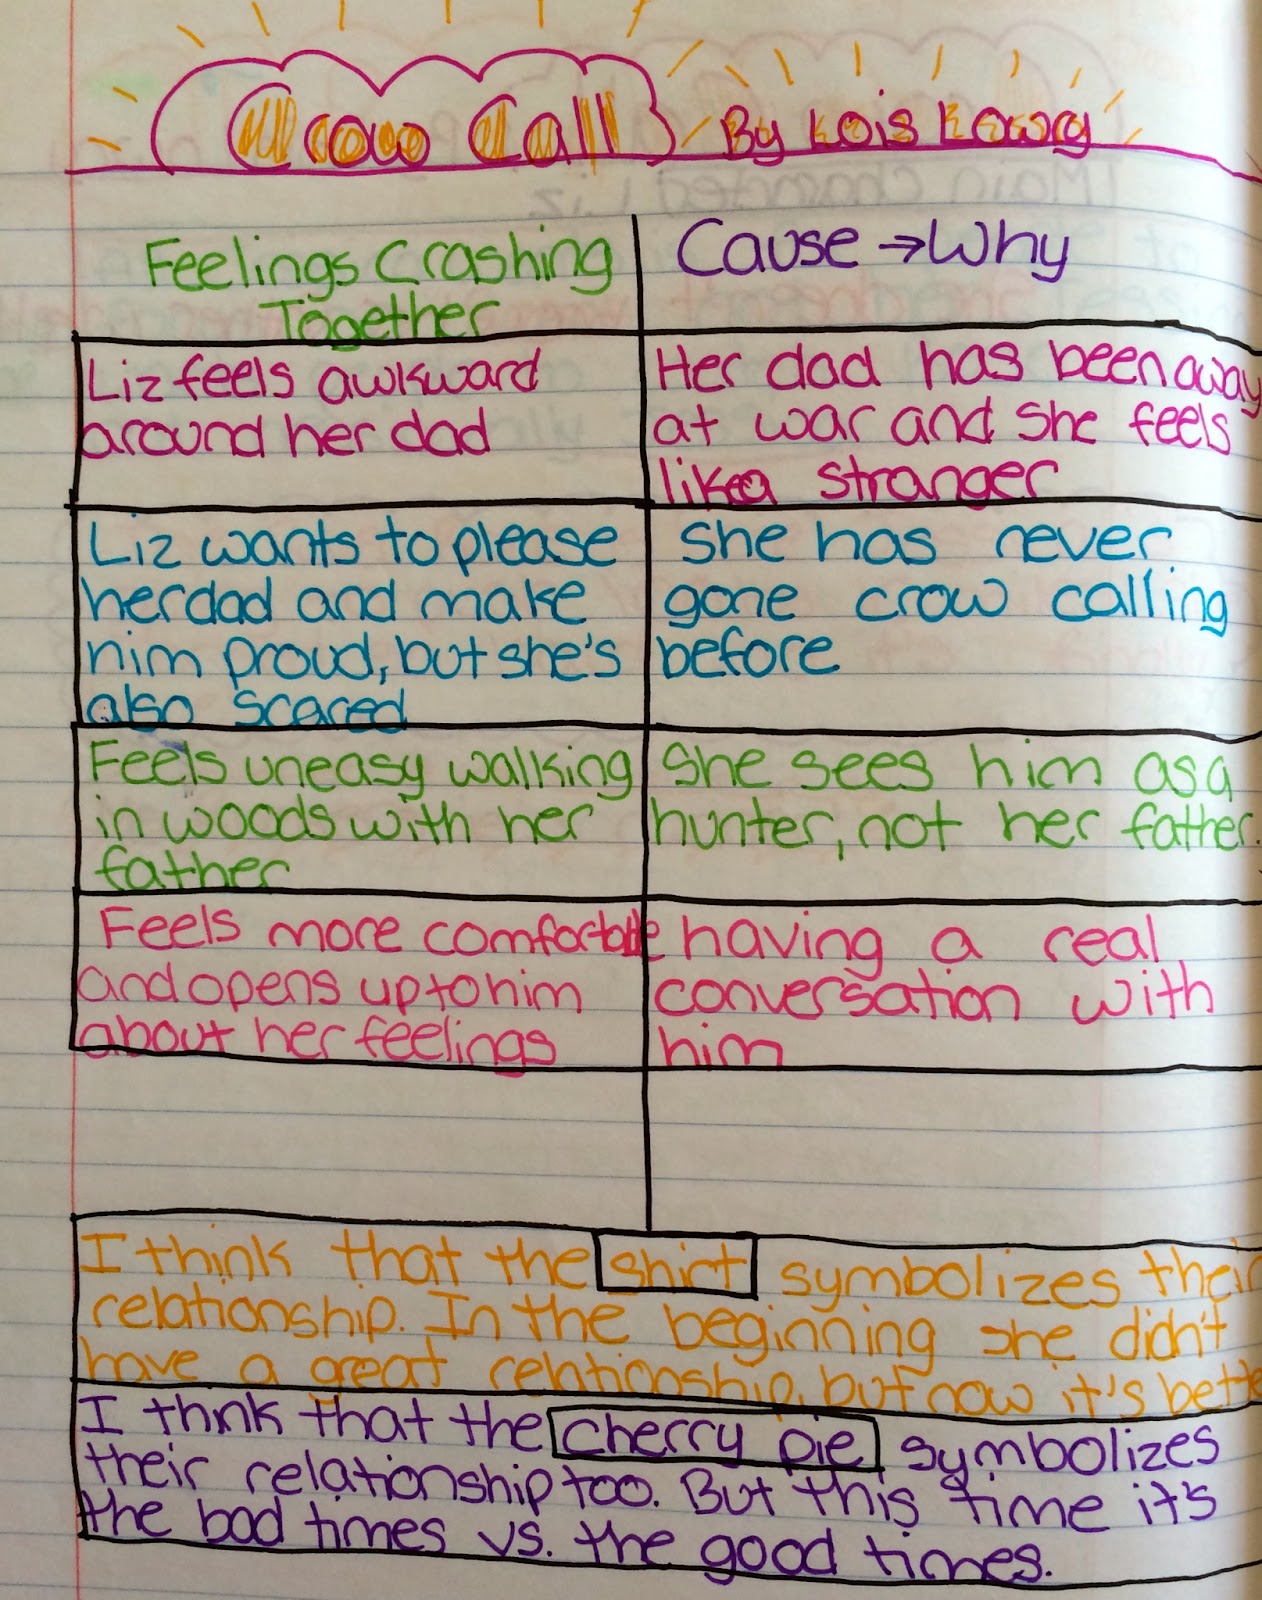 Crow Call By Lois Lowry
Feelings Crashing
Together
Cause → Why
Liz feels awkward
around her dad
Her dad has been away
at war and she feels
like a stranger
Liz wants to please
her dad and make
him proud, but she's
also scared
She has never
gone crow calling
before
Feels uneasy walking
in woods with her
father
She sees him as a
hunter, not her father.
Feels more comfortable
and opens up to him
about her feelings
having a real
conversation with
him
I think that the shirt symbolizes their
relationship. In the beginning she didn't
have a great relationship, but now it's bette
I think that the cherry pie symbolizes
their relationship too. But this time it's
the bad times vs. the good times.